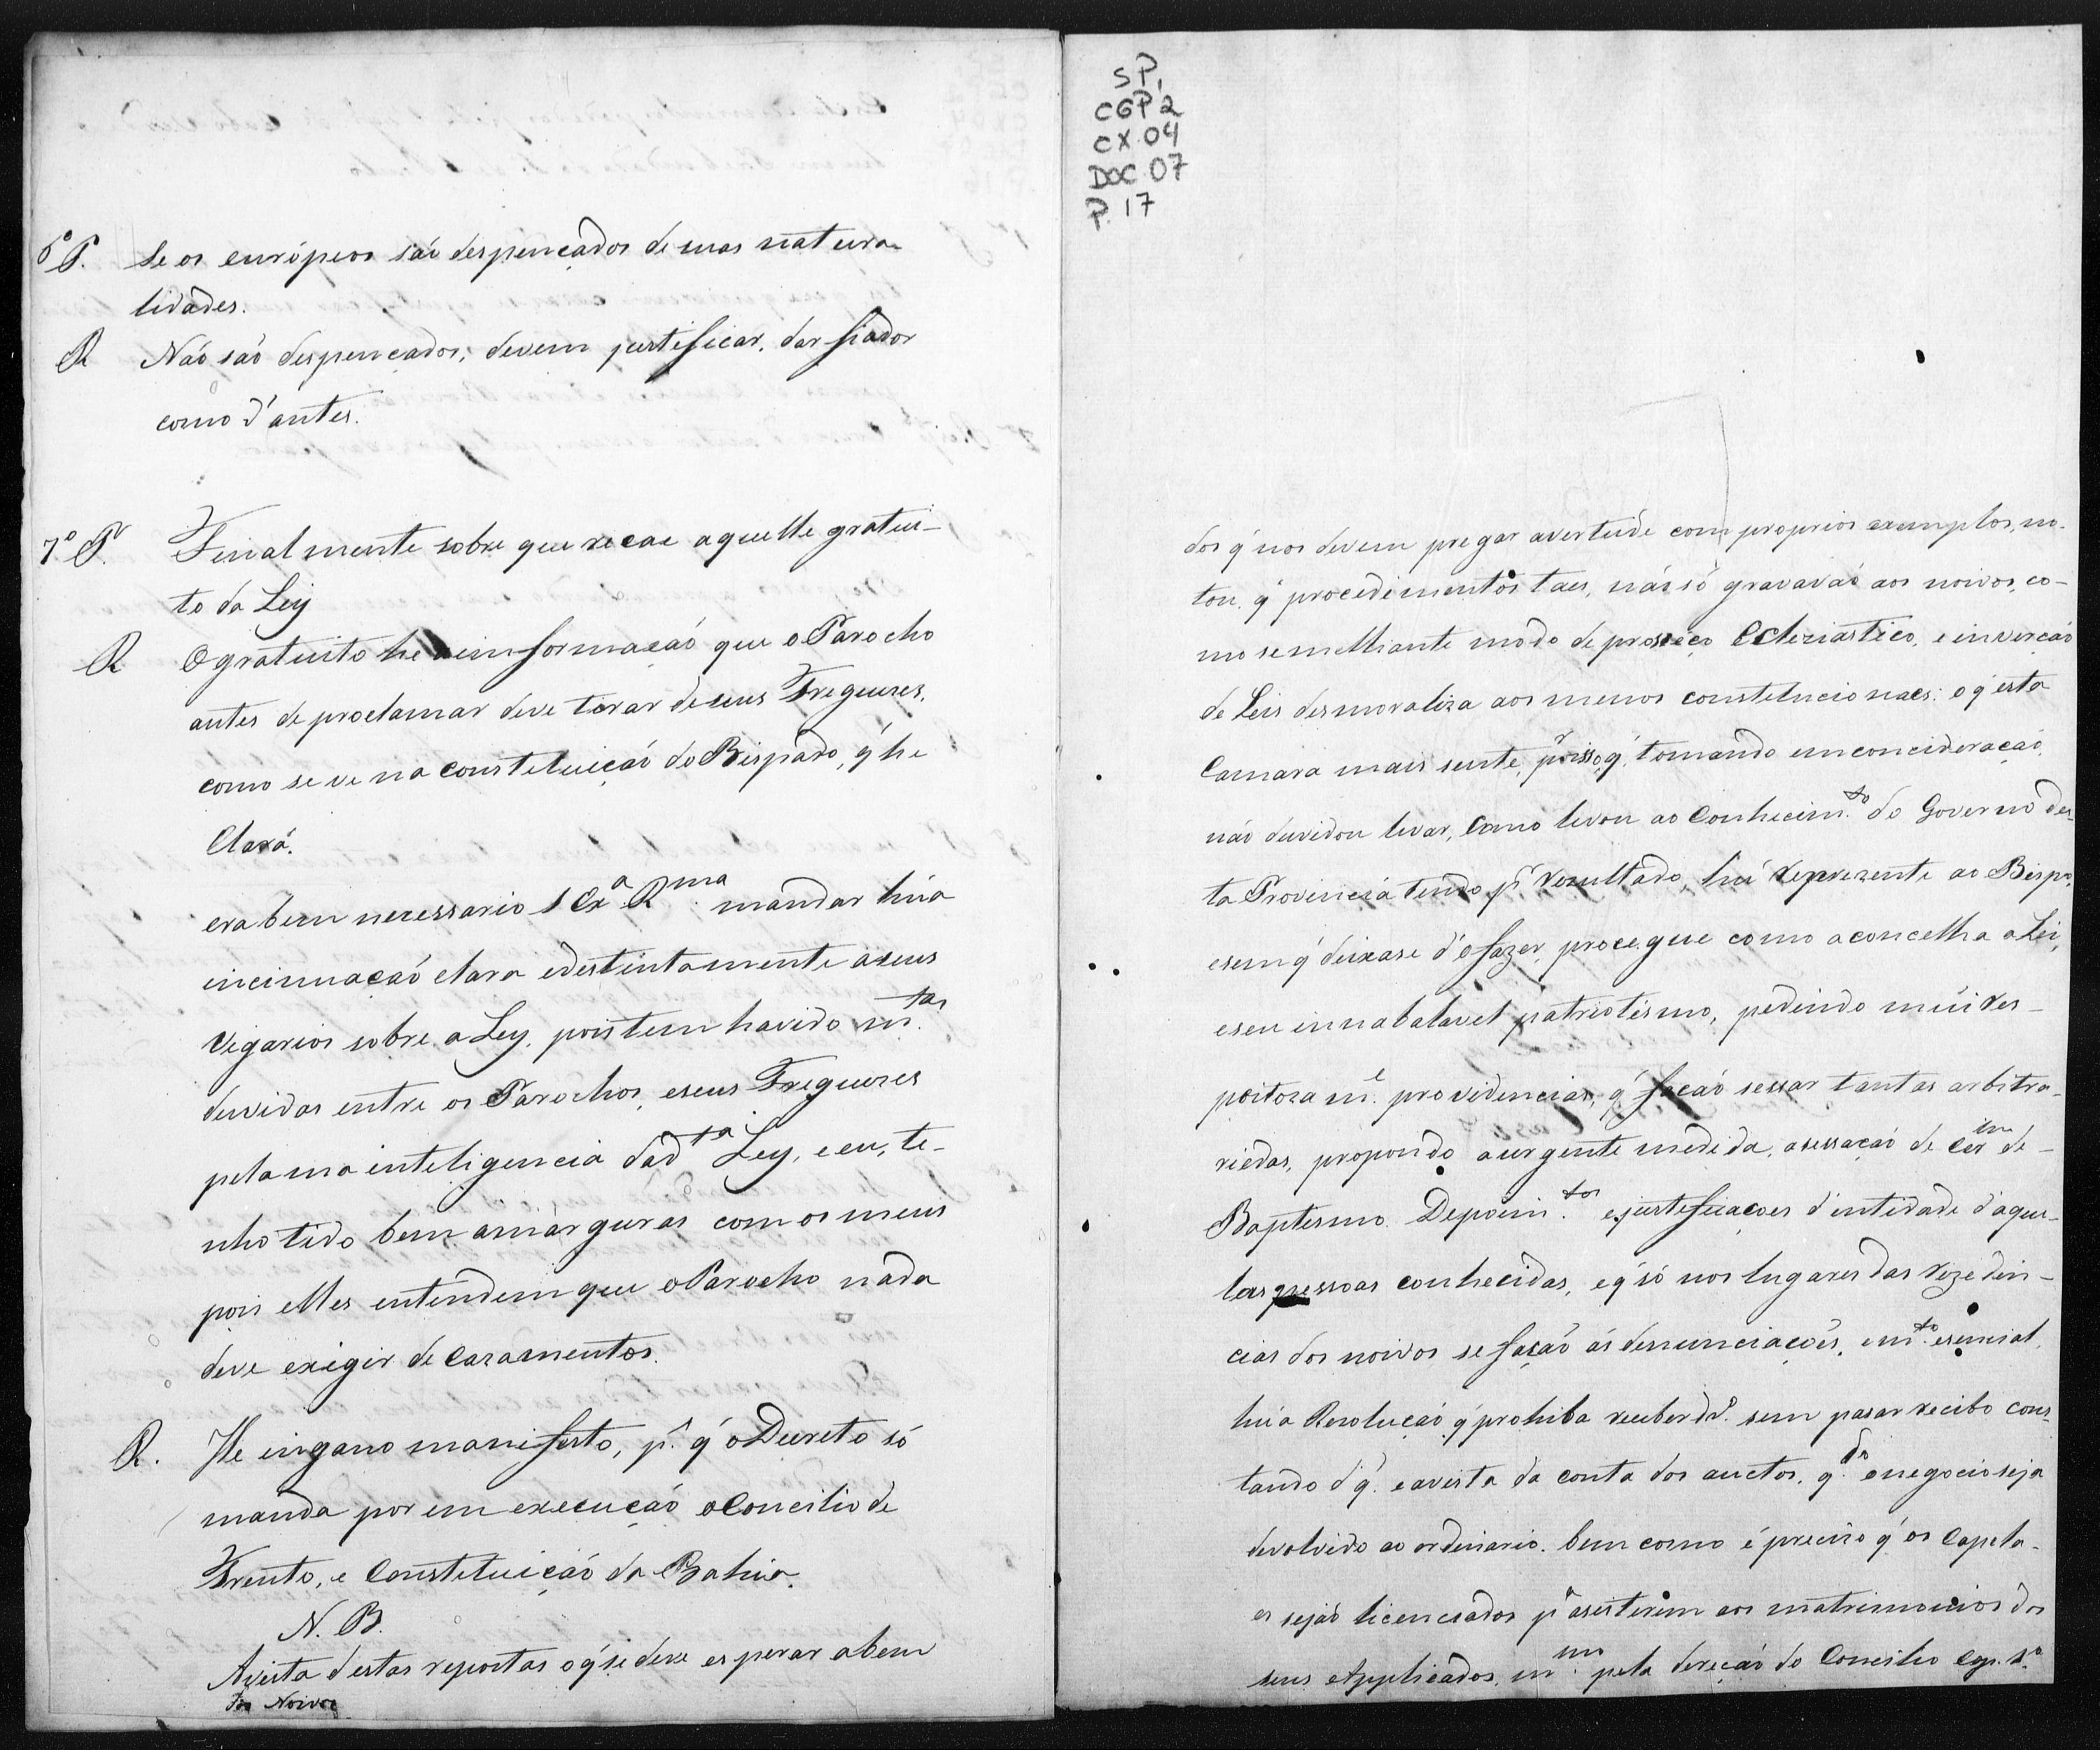 6º P. Se os európeos saó despençados de suas natura-
lidades.
R Naó saó despençados; devem justificar, dar fiador
como d'antes.
7º P. Finalmente sobre que recae aquelle gratui-
to da Ley
R O gratuito he a informaçaó que o Parocho
antes de proclamar deve tirar de seus Freguezes,
como se ve na constetuiçaó do Bispado, q' he
Clara.
era bem necessario S Exª Rma mandar húa
incinuaçaó clara e destintamente a seus
Vigarios sobre a Ley, pois tem havido m.tas
duvidas entre os Parochos, e seus Freguezes
pela má inteligencia da d.ta Ley, e eu, te-
nho tido bem amárguras com os meus
pois elles entendem que o Parocho nada
deve exigir de Casamentos.
R. He ingano manifesto, p.r q' o Decreto só
manda por em execuçaó o Concilio de
Trento, e Constetuiçaó da Bahia.
N. B.
Avista destas repostas o q' se deve esperar a bem
dos Noivos
SP,
CGP 2
CX.04
DOC.07
P. 17
dos q' nos devem pregar a vertude com proprios exemplos, no-
tou q' procedimentos taes, náo só gravavaó aos noivos, co-
mo semelhante modo de proceço Ecleziastico, e inverçaó
de Leis desmoraliza aos menos constetucionaes: o q' esta
Camara mais sente, p.r isso q' tomando em concideraçaó,
náo duvidou levar, Como levou ao Conhecim.to do Governo des-
ta Provincia tendo p.r rezultado, hú reprezente ao Bispo,
e sem q' deixase d'o fazer, procegue como aconcelha a Lei,
e seu innabalavel patriotismo, pedindo mui res-
peitozam.e providencias, q' façaó sessar tantas arbitra-
riedas, propondo a urgente medida, a sessaçaó de Cer.im de
Baptismo. Depoim.tos e justeficaçoes d'intidade d'aque-
las pessoas conhecidas, e q' só nos lugares das rezeden-
cias dos noivos se fasaó ás denunciaçoẽs, e m.to esencial
húa Resoluçaó q' prohiba receber dr.º sem pasar recibo cons-
tando d'q' e avista da conta dos auctos, q.do o negocio seja
devolvido ao ordinario. bem como é preciso q' os Capela-
es sejaó licenciados p.ª asisterem aos matrimonios dos
seus Applicados, m.mo pela dereçaó do Concilio Cap. 1.º